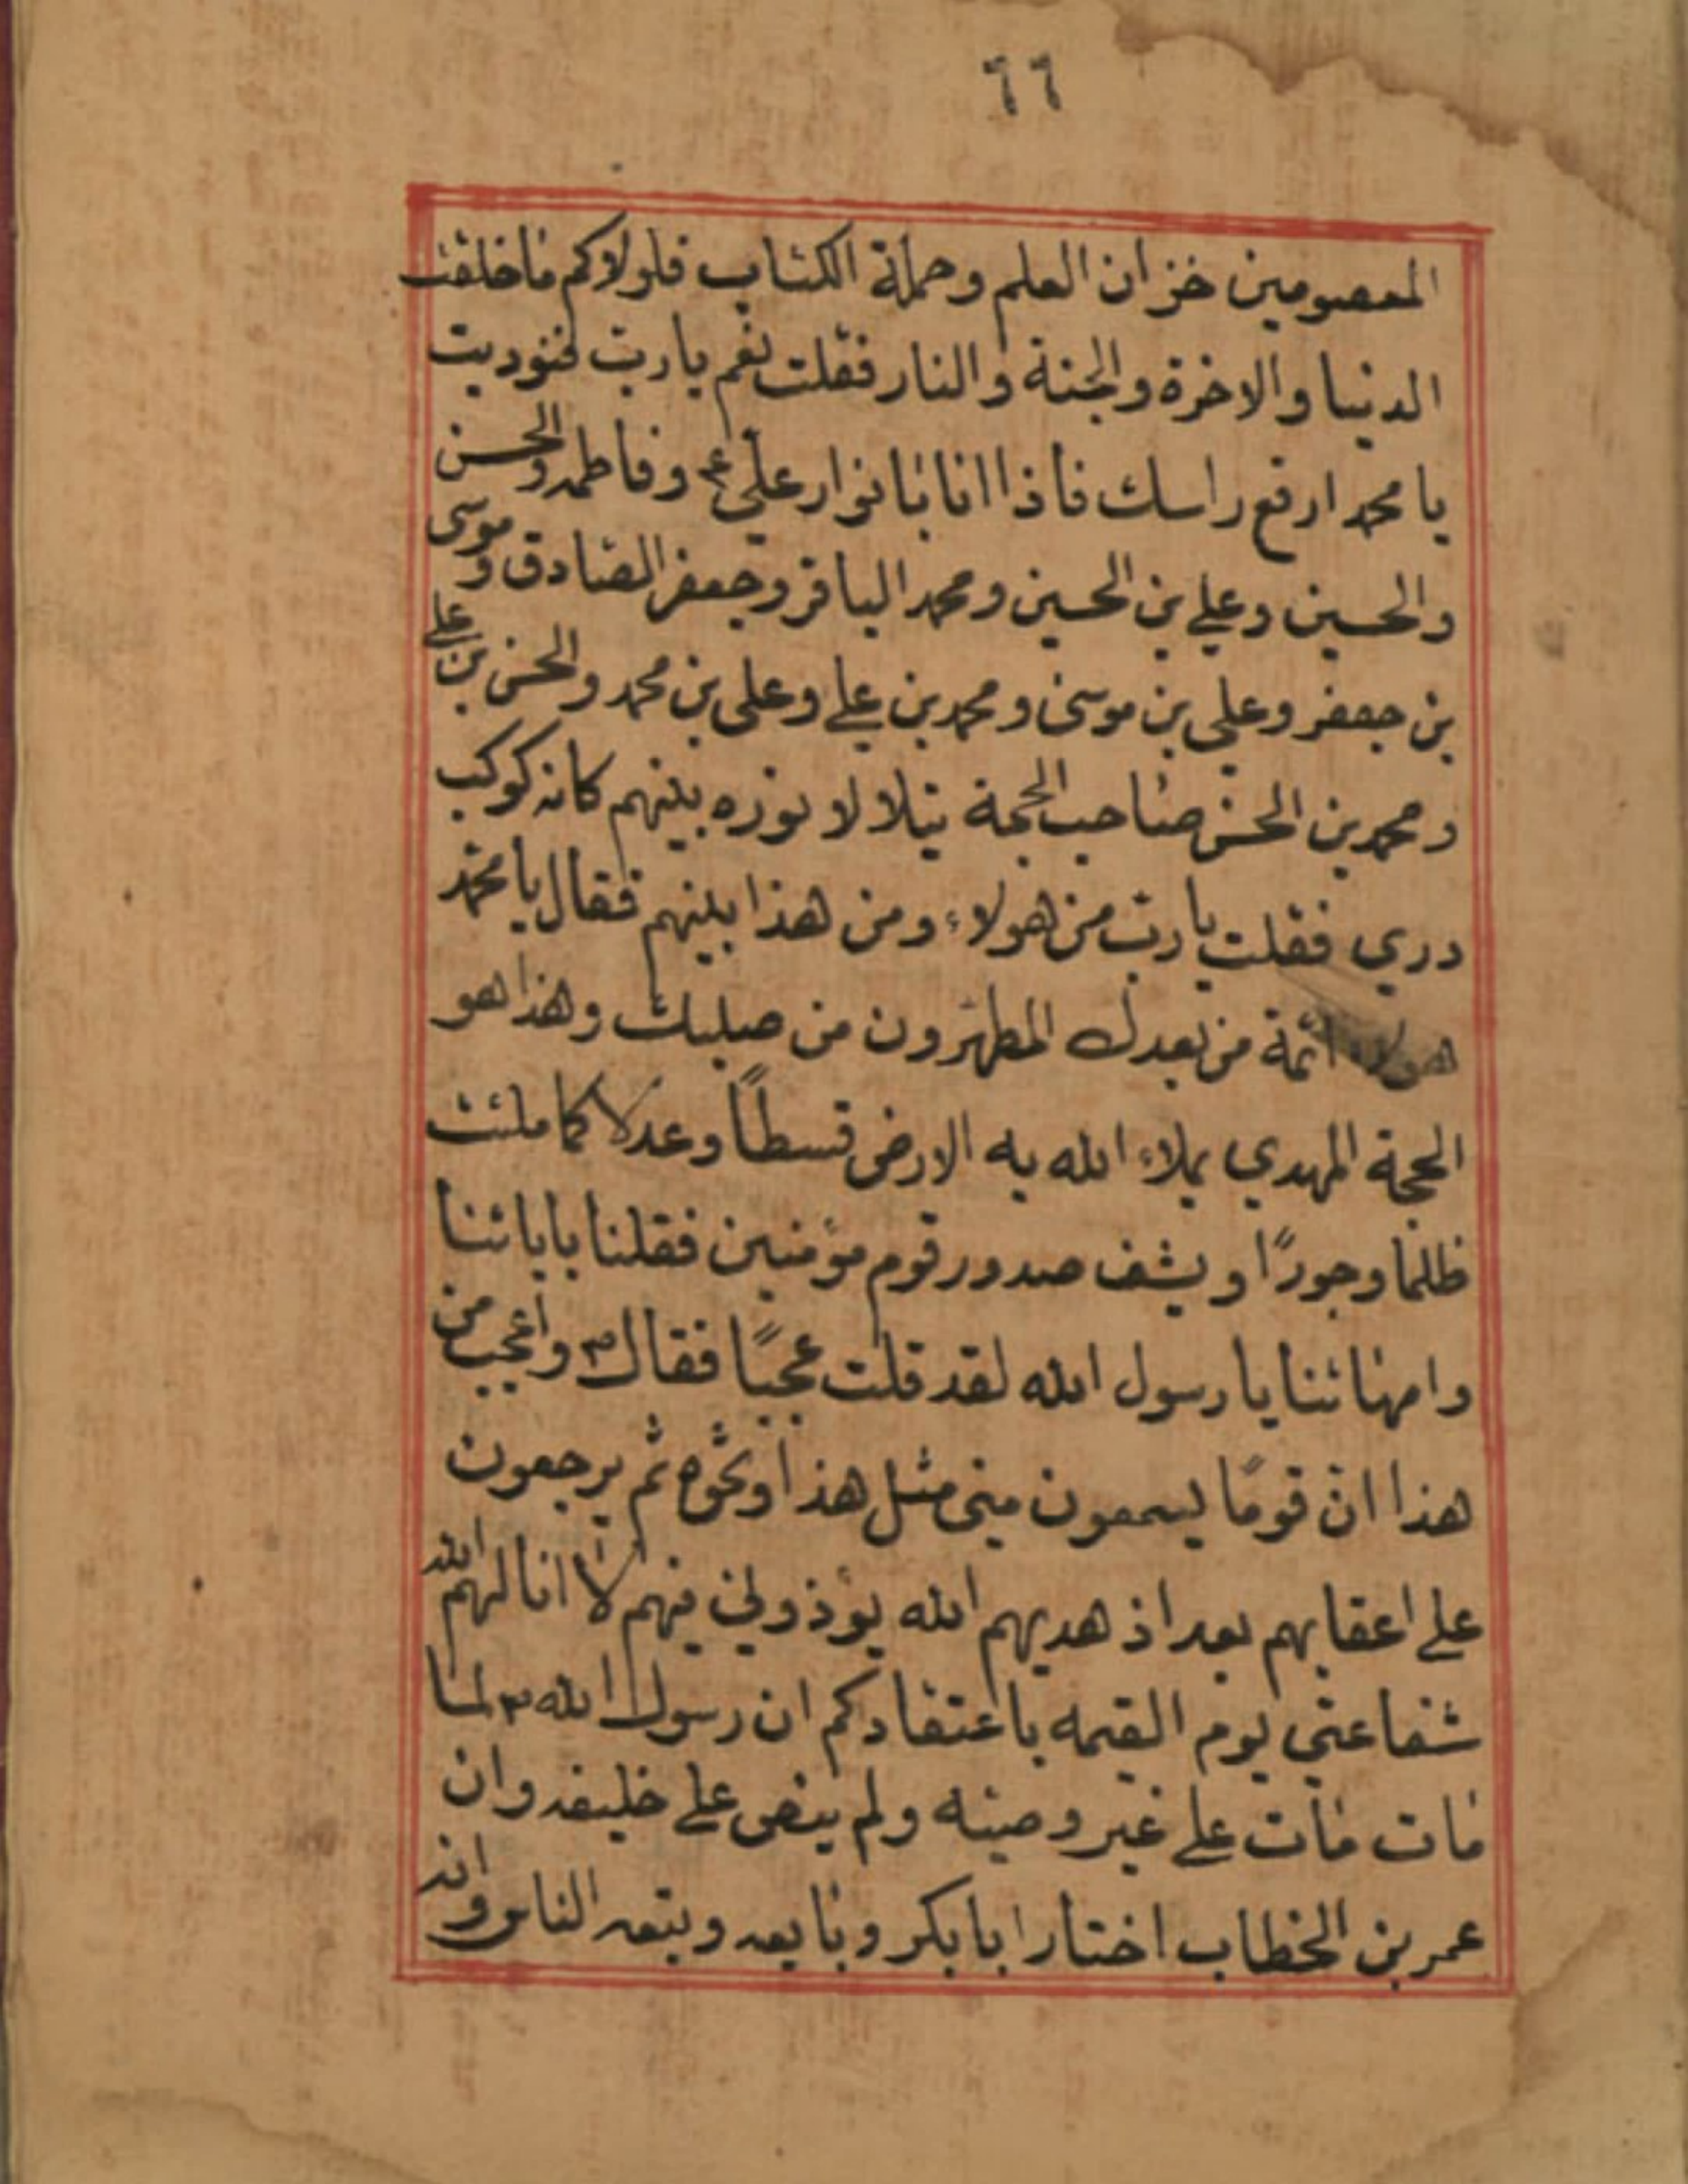 ٦٦
المعصومين خزان العلم وحملة الكتاب فلولاكم ما خلقت
الدنيا والاخرة والجنة والنار فقلت نعم يا ربّ فنوديت
يا محمد ارفع راسك فاذا انا بانوار علي ع وفاطمه والحسن
والحسين وعلي بن الحسين ومحمد الباقر وجعفر الصادق وموسى
بن جعفر وعلي بن موسى ومحمد بن علي وعلي بن محمد والحسن بن علي
ومحمد بن الحسن صاحب الحجة يتلالا نوره بينهم كانه كوكب
دري فقلت يا ربّ من هولاء ومن هذا بينهم فقال يا محمد
هولاء ائمة من بعدك المطهّرون من صلبك وهذا هو
الحجة المهدي يملاء الله به الارض قسطاً وعدلا كما ملئت
ظلما وجورًا ويشف صدور قوم مؤمنين فقلنا بابائنا
وامهاتنا يا رسول الله لقد قلت عجبًا فقال ص واعجب من
هذا انّ قومًا يسمعون مني مثل هذا ونحوه ثم يرجعون
علي اعقابهم بعد اذ هديهم الله يؤذوني فيهم لا انا لهم الله
شفاعتي يوم القيمه باعتقادكم ان رسول الله ص لما
مات مات علي غير وصيه ولم ينص علي خليفه وان
عمر بن الخطاب اختار ابا بكر وبايعه وبتعه الناس وانه